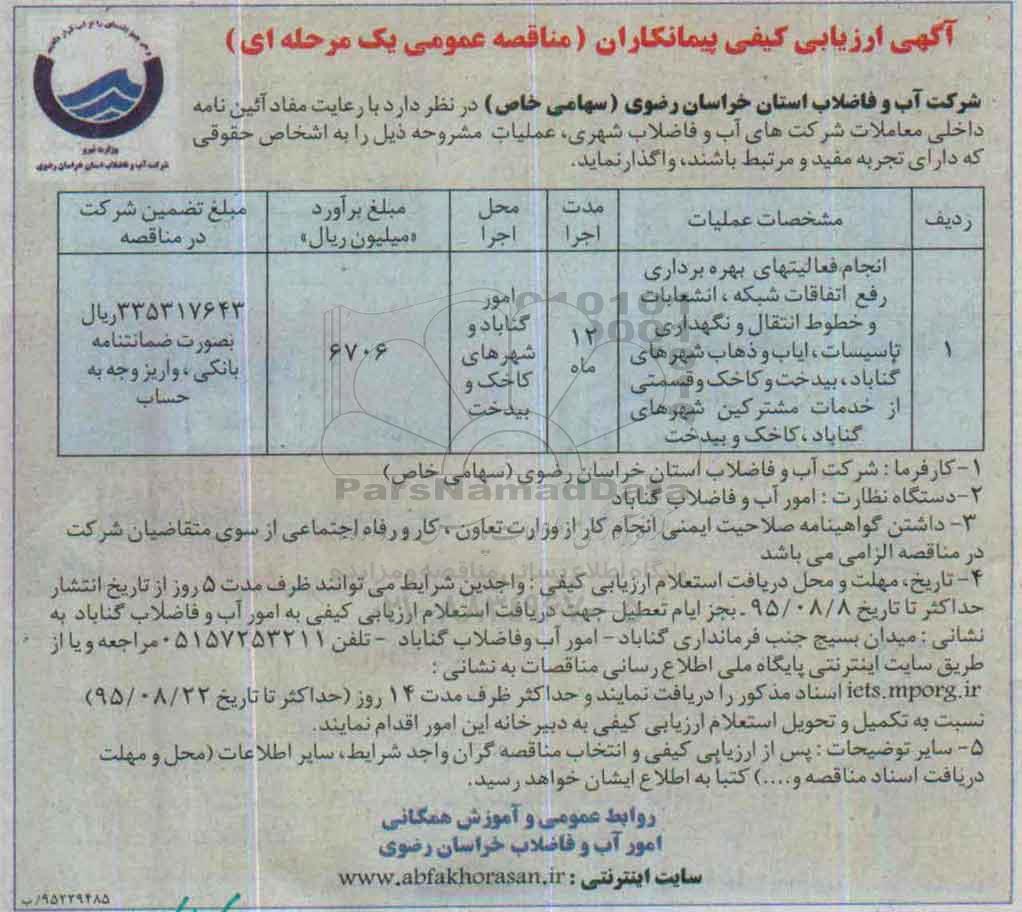 آگهی ارزیابی کیفی پیمانکاران (مناقصه عمومی یک مرحله ای)
وزارت نیرو
شرکت آب و فاضلاب استان خراسان رضوی
شرکت آب و فاضلاب استان خراسان رضوی (سهامی خاص) در نظر دارد با رعایت مفاد آئین نامه
داخلی معاملات شرکت های آب و فاضلاب شهری، عملیات مشروحه ذیل را به اشخاص حقوقی
که دارای تجربه مفید و مرتبط باشند، واگذار نماید.
ردیف
مشخصات عملیات
مدت
اجرا
محل
اجرا
مبلغ برآورد
«میلیون ریال»
مبلغ تضمین شرکت
در مناقصه
۱
انجام فعالیتهای بهره برداری
رفع اتفاقات شبکه ، انشعابات
و خطوط انتقال و نگهداری
تاسیسات ، ایاب و ذهاب شهرهای
گناباد ، بیدخت و کاخک و قسمتی
از خدمات مشترکین شهرهای
گناباد ، کاخک و بیدخت
۱۲
ماه
امور
گناباد و
شهرهای
کاخک و
بیدخت
۶۷۰۶
۳۳۵۳۱۷۶۴۳ ریال
بصورت ضمانتنامه
بانکی ، واریز وجه به
حساب
۱- کارفرما : شرکت آب و فاضلاب استان خراسان رضوی (سهامی خاص)
ParsNamadData
۲- دستگاه نظارت : امور آب و فاضلاب گناباد
۳- داشتن گواهینامه صلاحیت ایمنی انجام کار از وزارت تعاون ، کار و رفاه اجتماعی از سوی متقاضیان شرکت
در مناقصه الزامی می باشد
۴- تاریخ، مهلت و محل دریافت استعلام ارزیابی کیفی : واجدین شرایط می توانند ظرف مدت ۵ روز از تاریخ انتشار
حداکثر تا تاریخ ۹۵/۰۸/۸ ـ بجز ایام تعطیل جهت دریافت استعلام ارزیابی کیفی به امور آب و فاضلاب گناباد به
نشانی : میدان بسیج جنب فرمانداری گناباد - امور آب وفاضلاب گناباد - تلفن ۰۵۱۵۷۲۵۳۲۱۱ مراجعه و یا از
طریق سایت اینترنتی پایگاه ملی اطلاع رسانی مناقصات به نشانی :
iets.mporg.ir اسناد مذکور را دریافت نمایند و حداکثر ظرف مدت ۱۴ روز (حداکثر تا تاریخ ۹۵/۰۸/۲۲)
نسبت به تکمیل و تحویل استعلام ارزیابی کیفی به دبیرخانه این امور اقدام نمایند.
۵- سایر توضیحات : پس از ارزیابی کیفی و انتخاب مناقصه گران واجد شرایط، سایر اطلاعات (محل و مهلت
دریافت اسناد مناقصه و....) کتبا به اطلاع ایشان خواهد رسید.
روابط عمومی و آموزش همگانی
امور آب و فاضلاب خراسان رضوی
سایت اینترنتی : www.abfakhorasan.ir
۹۵۲۲۹۴۸۵/ب